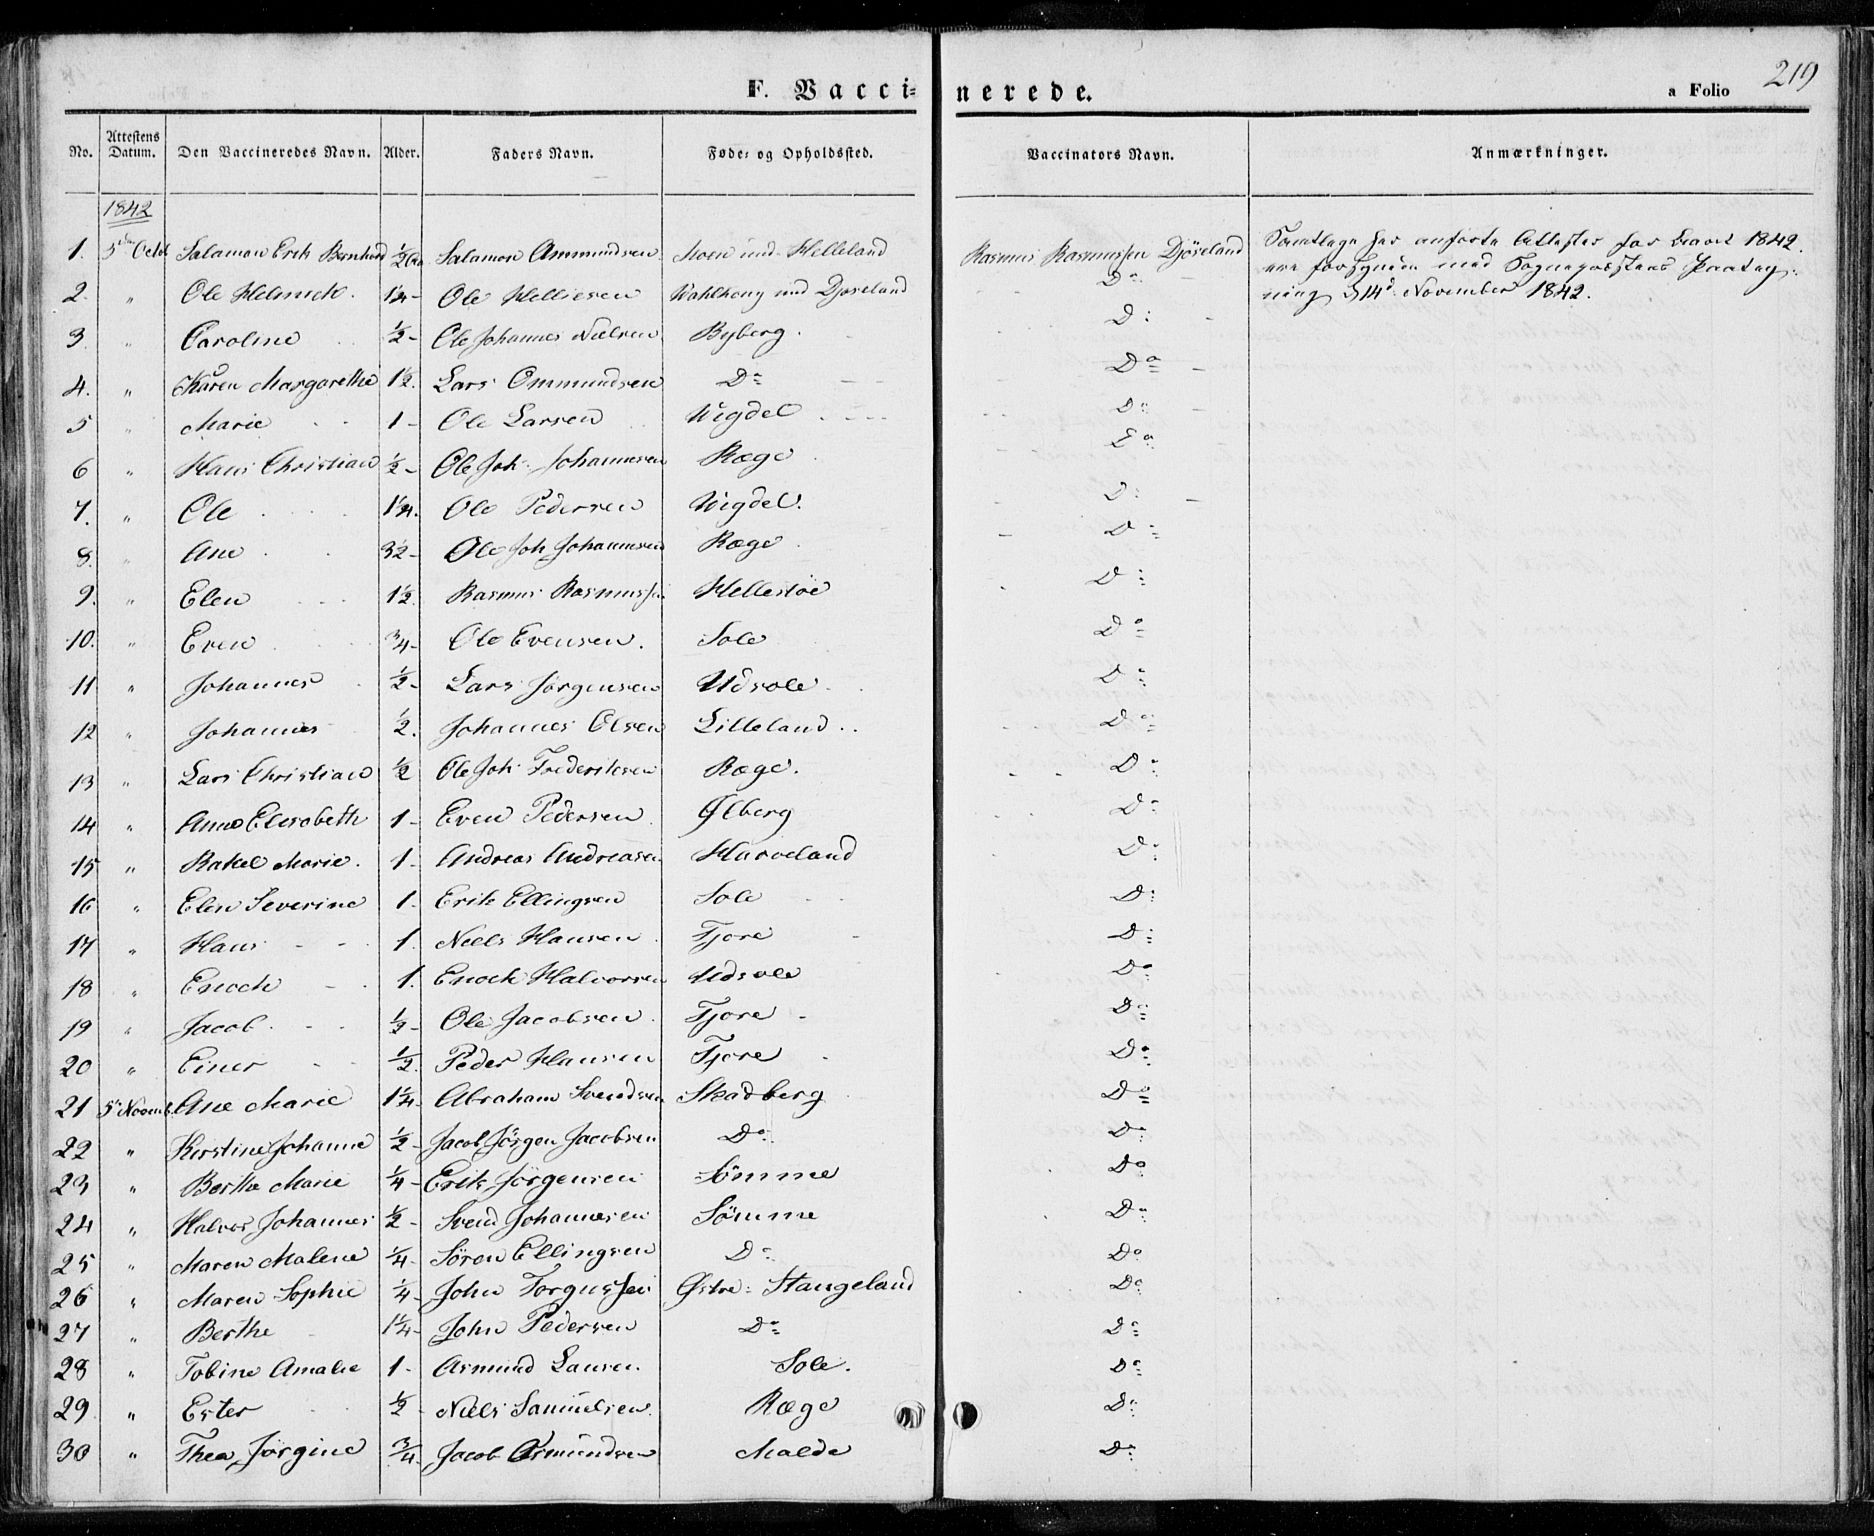 F. Vacci-
nerede.
a Folio 219
No. Attestens Datum. Den Vaccineredes Navn. Alder. Faders Navn. Føde- og Opholdssted. Vaccinators Navn. Anmærkninger.
1842
1. 5te Octob Salamon Erik Bernhard ½ Aar Salamon Ammundsen und. Helleland Rasmus Rasmussen Djöseland
Samtlige her anførte Attester for Aaret 1842
ere forsynede med Sognepræstens Paateg-
ning d 14d November 1842.
2. " Ole Helmich 1¼ - Ole Helliesen und Djöseland Do
3. " Caroline ½ - Ole Johannes Nielsen Byberg. Do
4. " Karen Margarethe 1½. Lars Ommundsen Do Do
5 " Marie 1 - Ole Larsen Wigdel Do
6 " Hans Christian ½ - Ole Joh. Johannesen Ræge Do
7. " Ole 1¼. Ole Pedersen Wigdel. Do
8. " Ane 3½ - Ole Joh Johannesen Ræge Do
9. " Elen 1½. Rasmus Rasmussen Hellestöe Do
10. " Even ¾ - Ole Evensen. Sole Do
11 " Johannes ½ - Lars Jørgensen Udsole Do
12 " Johannes ½. Johannes Olsen Lilleland Do
13 " Lars Christian ½ Ole Joh. Frederiksen Ræge. Do
14 " Anne Elisabeth 1 - Even Pedersen Ølberg Do
15 " Rakel Marie. 1 - Andreas Andreasen Harveland Do
16 " Elen Severine 1. Erik Ellingsen Sole Do
17 " Hans 1. Niels Hansen Tjore Do
18 " Enoch 1. Enoch Halvorsen Udsole Do
19 " Jacob ½ - Ole Jacobsen Tjore Do
20 " Einer ½ Peder Hansen Tjore Do
21 5 Novemb. Ane Marie 1¼ - Abraham Svendsen Skadberg Do
22 " Kirstine Johanne ½ - Jacob Jörgen Jacobsen Do Do
23 " Berthe Marie ¼ - Erik Jörgensen Sömme Do
24 " Halvor Johannes ½ - Svend Johannesen Sömme Do
25 " Maren Malene ¼ - Sören Ellingsen Do Do
26 " Maren Sophie ¼ - John Torgussen Østre Stangeland Do
27 " Berthe 1¼ - John Pedersen Do Do
28 " Tobine Amalie 1 - Asmund Lausen Sole. Do
29 " Ester ½ - Niels Samuelsen. Ræge Do
30 " Thea Jörgine ¾ - Jacob Asmundsen Malde Do